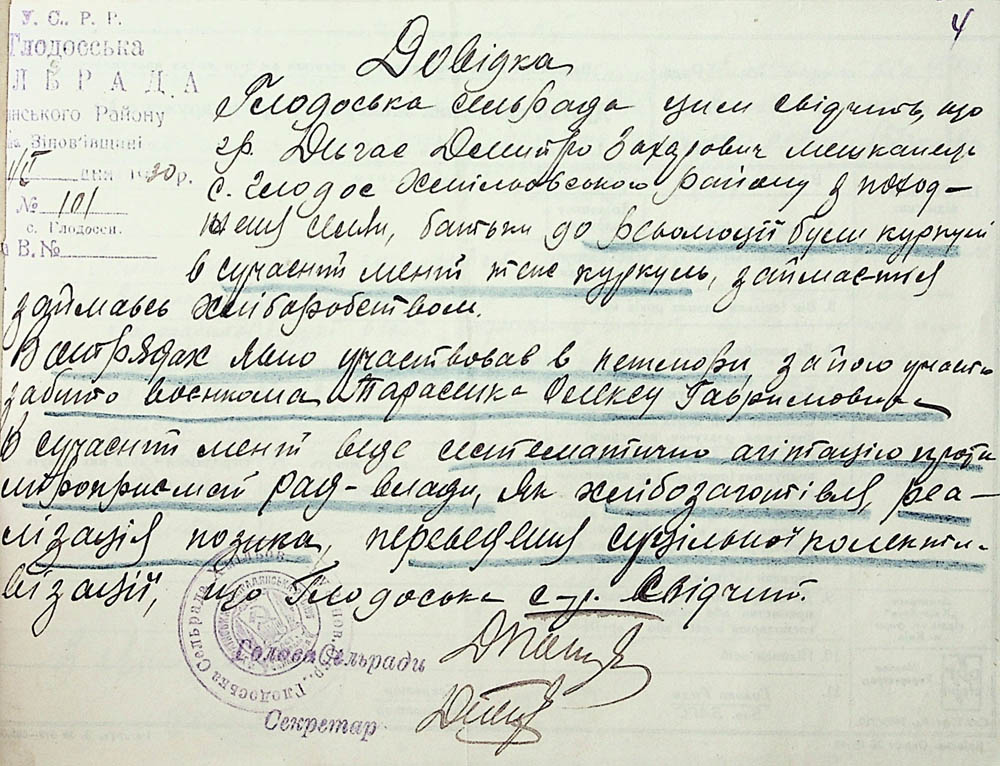 4
У. С. Р. Р.
Глодосська
ЛЬРАДА
нського Району
на Зінов'ївщині
дня 1930р.
№ 101
с. Глодосси.
В. №
Довідка
Глодоська сельрада цим свідчить, що
гр. Дмитро Захарович мешканець
с. Глодос Хмільовського району з поход-
ження батьки до були куркулі
в сучасний мент теж куркуль, займається
займавсь хліборобством.
В отрядах явно участвовав в за його участю
забито воєнкома Тарасенка Олексу Гавриловича
В сучасний мент веде систематично агітацію проти
міроприємств рад-влади, як хлібозаготівля, реа-
лізація позики, переведення суцільної колекти-
візації, що Глодоська с-р. свідчить.
Голова Сельради
Секретар